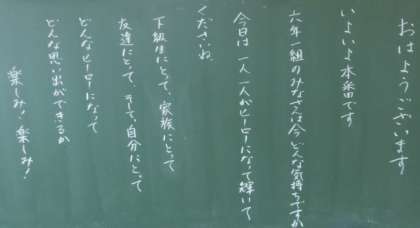 おはようございます
いよいよ本番です
六年一組のみなさんは今どんな気持ちですか
今日は一人一人がヒーローになって輝いて
くださいね。
下級生にとって、家族にとって
友達にとって、そして、自分にとって
どんなヒーローになって
どんな思い出ができるか
楽しみ！楽しみ！